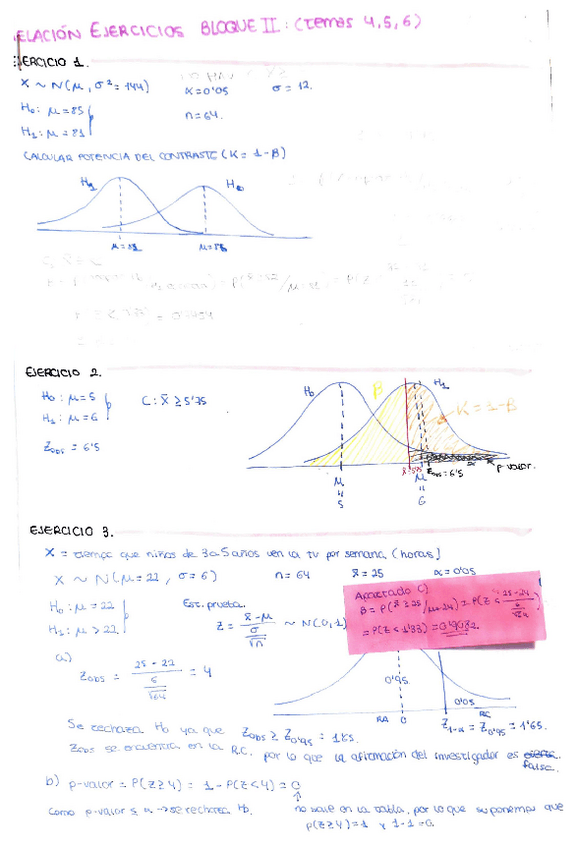 RELACIÓN EJERCICIOS BLOQUE II: (TEMAS 4,5,6)
EJERCICIO 1.
X ~ N(μ, σ²=144) α=0'05 σ = 12.
H₀: μ=85 n=64.
H₁: μ=81
CALCULAR POTENCIA DEL CONTRASTE (K = 1-β)
H₁ H₀
μ=81 μ=85
EJERCICIO 2.
H₀: μ=5 C: x̄ ≥ 5'75
H₁: μ=6
Zobs = 6'5
H₀ β H₁ K=1-β
Zobs=6'5 p-valor.
μ=5 μ=6
EJERCICIO 3.
X = tiempo que niños de 3 a 5 años ven la tv por semana (horas)
X ~ N(μ=22, σ=6) n=64 x̄=25 α=0'05
H₀: μ=22 Est. prueba.
H₁: μ>22 Z = x̄-μ / σ/√n ~ N(0,1)
Apartado c)
β = P(x̄ ≥ 25/μ=24) = P(Z < 25-24 / 6/√64)
= P(Z < 1'33) = 0'9082.
a)
Zobs = 25-22 / 6/√64 = 4
0'95 0'05
RA 0 RC
Z₁₋α = Z₀'₉₅ = 1'65.
Se rechaza H₀ ya que Zobs ≥ Z₀'₉₅ = 1'65.
Zobs se encuentra en la R.C. por lo que la afirmación del investigador es cierta falsa.
b) p-valor = P(Z≥4) = 1 - P(Z<4) = 0
Como p-valor ≤ α → se rechaza H₀. no sale en la tabla, por lo que suponemos que
P(Z≥4)=1 y 1-1=0.